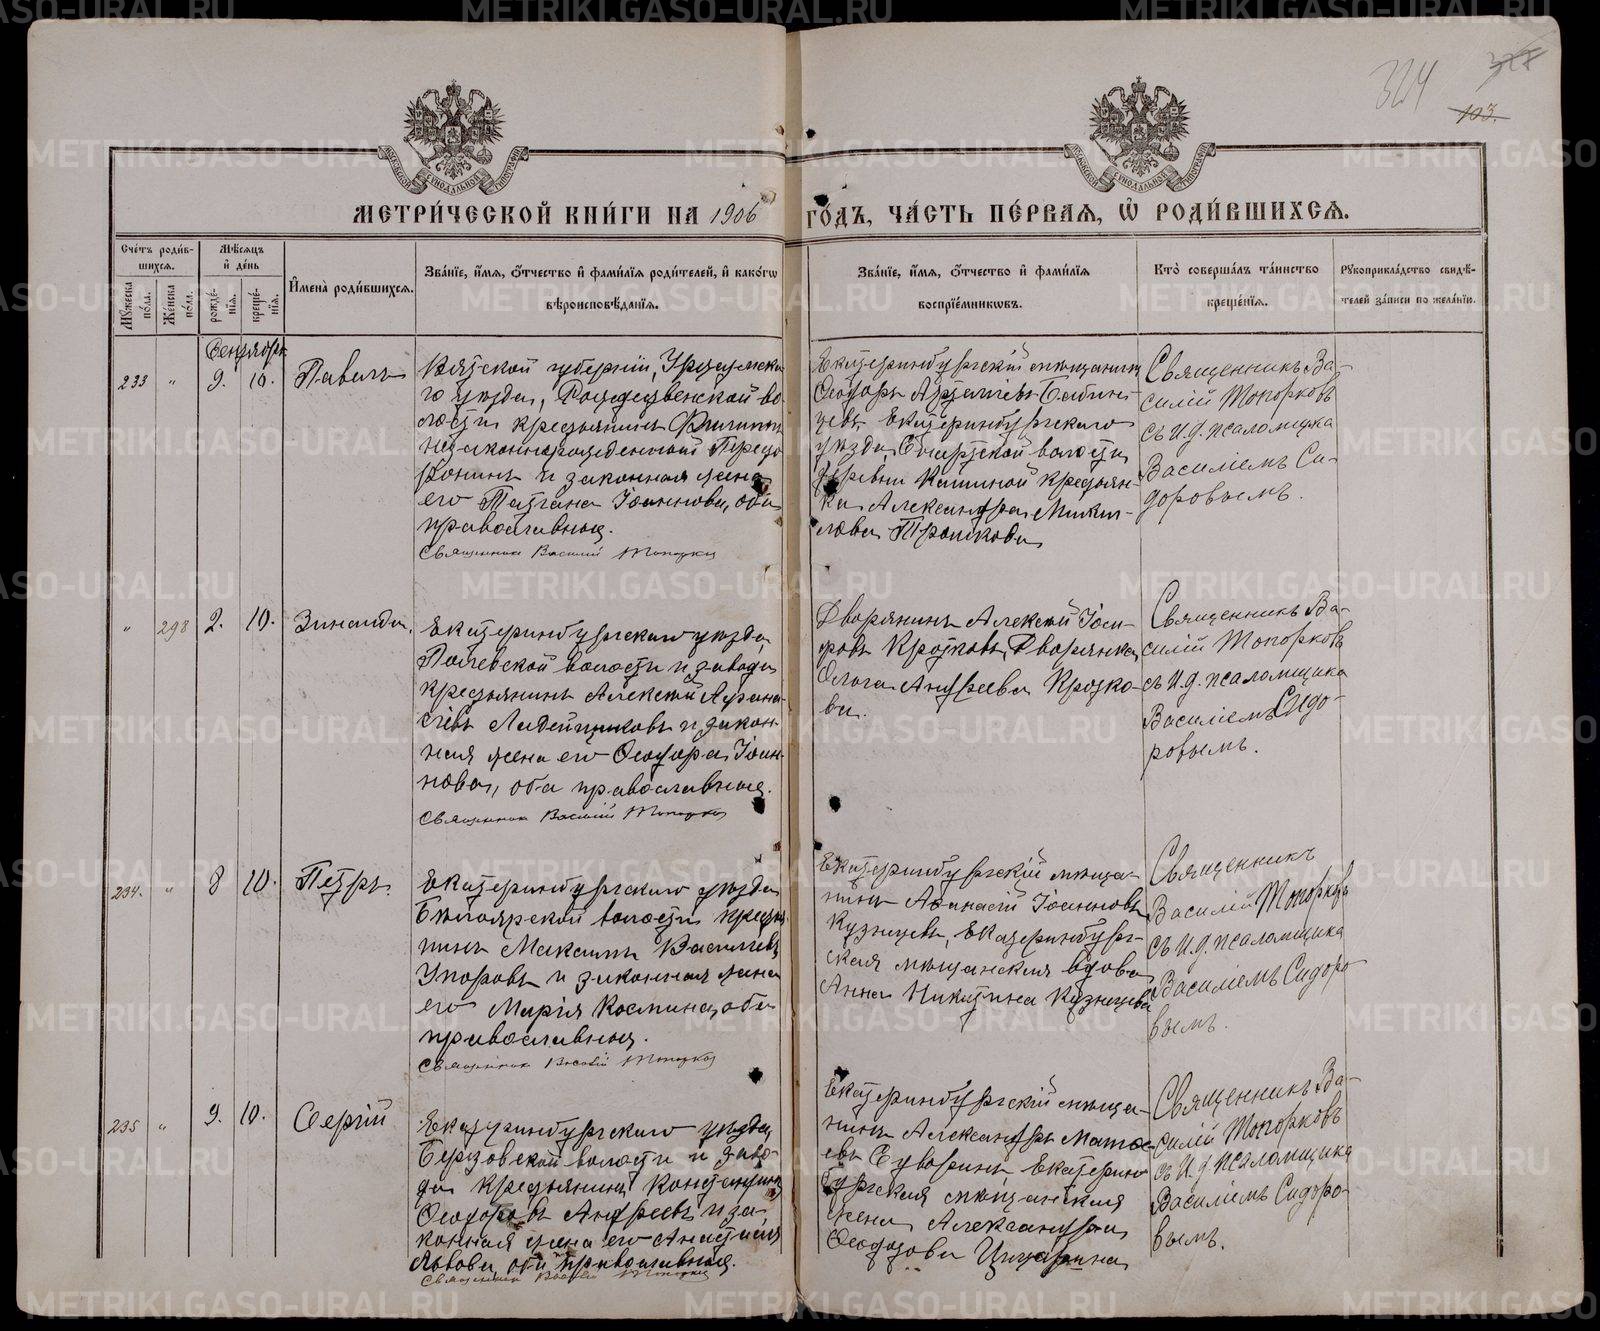 324
103.
МЕТРИ́ЧЕСКОЙ КНИ́ГИ НА 1906 ГО́ДЪ, ЧА́СТЬ ПЕ́РВАЯ, Ѡ РОДИ́ВШИХСЯ.
Счетъ роди́вшихся.
Му́жеска по́ла.
Же́нска по́ла.
Мѣ́сяцъ и де́нь
рожде́нія.
креще́нія.
Имена̀ роди́вшихся.
Зва́ніе, и́мя, о́тчество и фами́лія роди́телей, и како́гѡ
вѣроисповѣ́данія.
Зва́ніе, и́мя, о́тчество и фами́лія
воспріе́мниковъ.
Кто̀ соверша́лъ та́инство
креще́нія.
Рукоприкла́дство свидѣ́-
телей за́писи по жела́нію.
Сентябрь
233 " 9. 10. Павелъ
Вятской губерніи, Уржумска-
го уѣзда, Рождественской во-
лости крестьянинъ Филиппъ
незаконнорожденный
и законная жена
его Татіана Іоаннова, оба
православные.
Священникъ Василій Топорковъ
Екатеринбургскій мѣщанинъ
Ѳеодоръ
Екатеринбургскаго
уѣзда, волости
деревни крестьян-
ка Александра Михаи-
лова
Священникъ Ва-
силій Топорковъ
съ И.д. псаломщика
Василіемъ Си-
доровымъ.
" 298 2. 10. Зинаида.
Екатеринбургскаго уѣзда,
Полевской волости и завода
крестьянинъ Алексѣй Аѳана-
сіевъ Ладейщиковъ и закон-
ная жена его Ѳеодора Іоан-
нова, оба православные.
Священникъ Василій Топорковъ
Дворянинъ Алексѣй Іоси-
фовъ Кротковъ, Дворянка
Ольга Андреева Кротко-
ва.
Священникъ Ва-
силій Топорковъ
съ И.д. псаломщика
Василіемъ Сидо-
ровымъ.
234. " 8 10. Петръ.
Екатеринбургскаго уѣзда
Бѣлоярской волости крестья-
нинъ Максимъ Васильевъ
Упоровъ и законная жена
его Марія Космина, оба
православные.
Священникъ Василій Топорковъ
Екатеринбургскій мѣща-
нинъ Аѳанасій Іоанновъ
Кузнецовъ, Екатеринбург-
ская мѣщанская вдова
Анна Никитина Кузнецова
Священникъ
Василій Топорковъ
съ И.д. псаломщика
Василіемъ Сидоро-
вымъ.
235 " 9. 10. Сергій
Екатеринбургскаго уѣзда,
Березовской волости и заво-
да крестьянинъ Константинъ
Ѳеодоровъ Андреевъ и за-
конная жена его Анастасія
Львова, оба православные.
Священникъ Василій Топорковъ
Екатеринбургскій мѣща-
нинъ Александръ Матѳе-
евъ Суворинъ, Екатерин-
бургская мѣщанская
жена Александра
Священникъ Ва-
силій Топорковъ
съ И.д. псаломщика
Василіемъ Сидоро-
вымъ.
METRIKI.GASO-URAL.RU